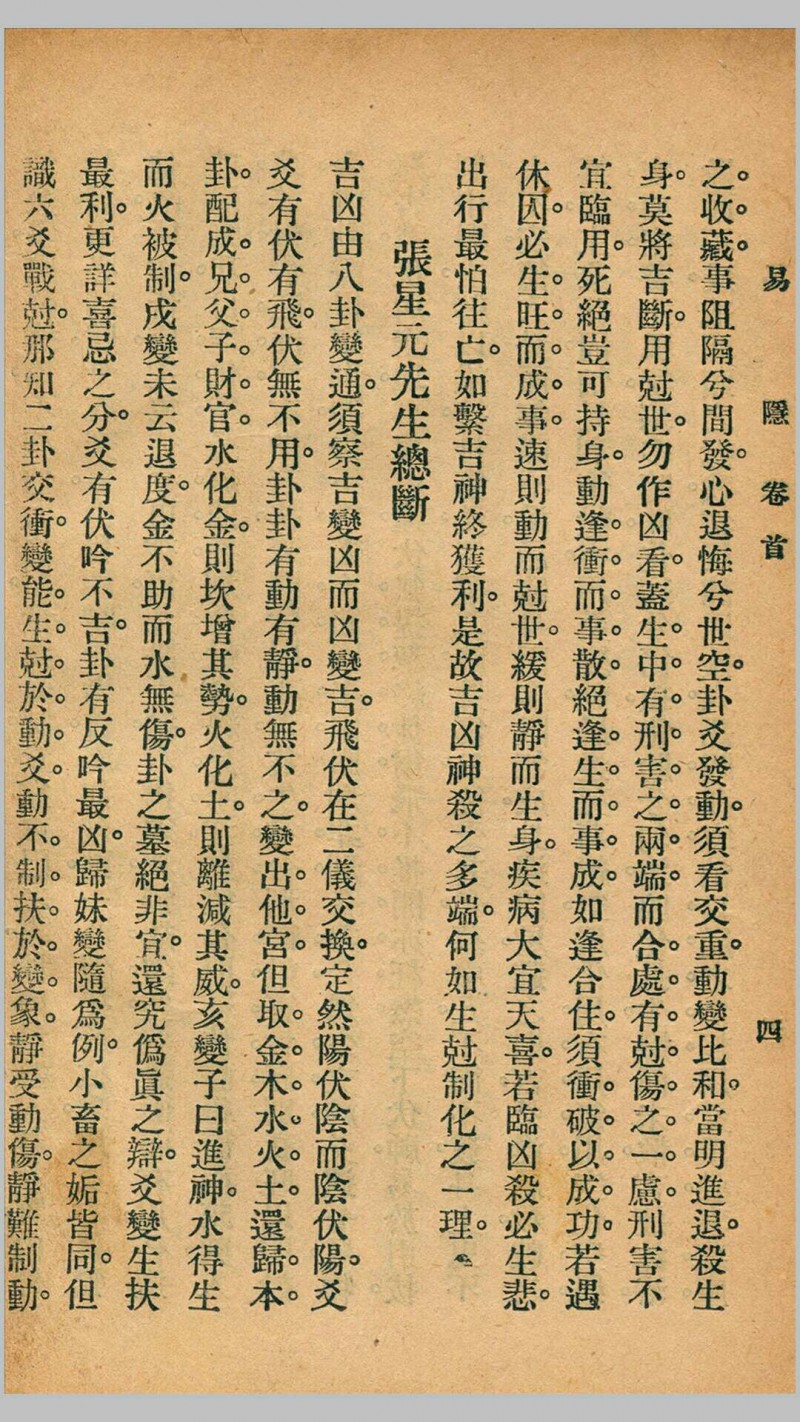 易隱卷首　四
之。收。藏。事阻隔兮間發。心退悔兮世空。卦爻發動。須看交重。動變比和。當明進退。殺生
身。莫將吉斷。用尅世。勿作凶看。蓋生。中。有。刑。害。之。兩。端。而合。處。有。尅。傷。之。一。慮。刑害不
宜臨用。死絕豈可持身。動逢。衝。而。事。散。絕逢。生。而。事。成。如逢合住。須衝。破。以。成。功。若遇
休囚。必生。旺。而。成。事。速則動而尅世。緩則靜而生身。疾病大宜天喜。若臨凶殺必生悲。
出行最怕往亡。如繫吉神終獲利。是故吉凶神殺之多端。何如生尅制化之一理。
張星元先生總斷
吉凶由八卦變通。須察吉變凶而凶變吉。飛伏在二儀交換。定然陽伏陰而陰伏陽。爻
爻有伏有飛。伏無不用。卦卦有動有靜。動無不之。變出。他。宮。但取。金。木。水。火。土。還歸。本。
卦。配成。兄。父。子。財。官。水化金。則坎增其勢。火化土。則離減其威。亥變子曰進神。水得生
而火被制。戌變未云退度。金不助而水無傷。卦之墓絕非宜。還究僞眞之辯。爻變生扶
最利。更詳喜忌之分。爻有伏吟不吉。卦有反吟最凶。歸妹變隨爲例。小畜之姤皆同。但
識六爻戰尅。那知二卦交衝。變能。生。尅。於。動。爻。動不。制。扶。於。變。象。靜受動傷。靜難制動。